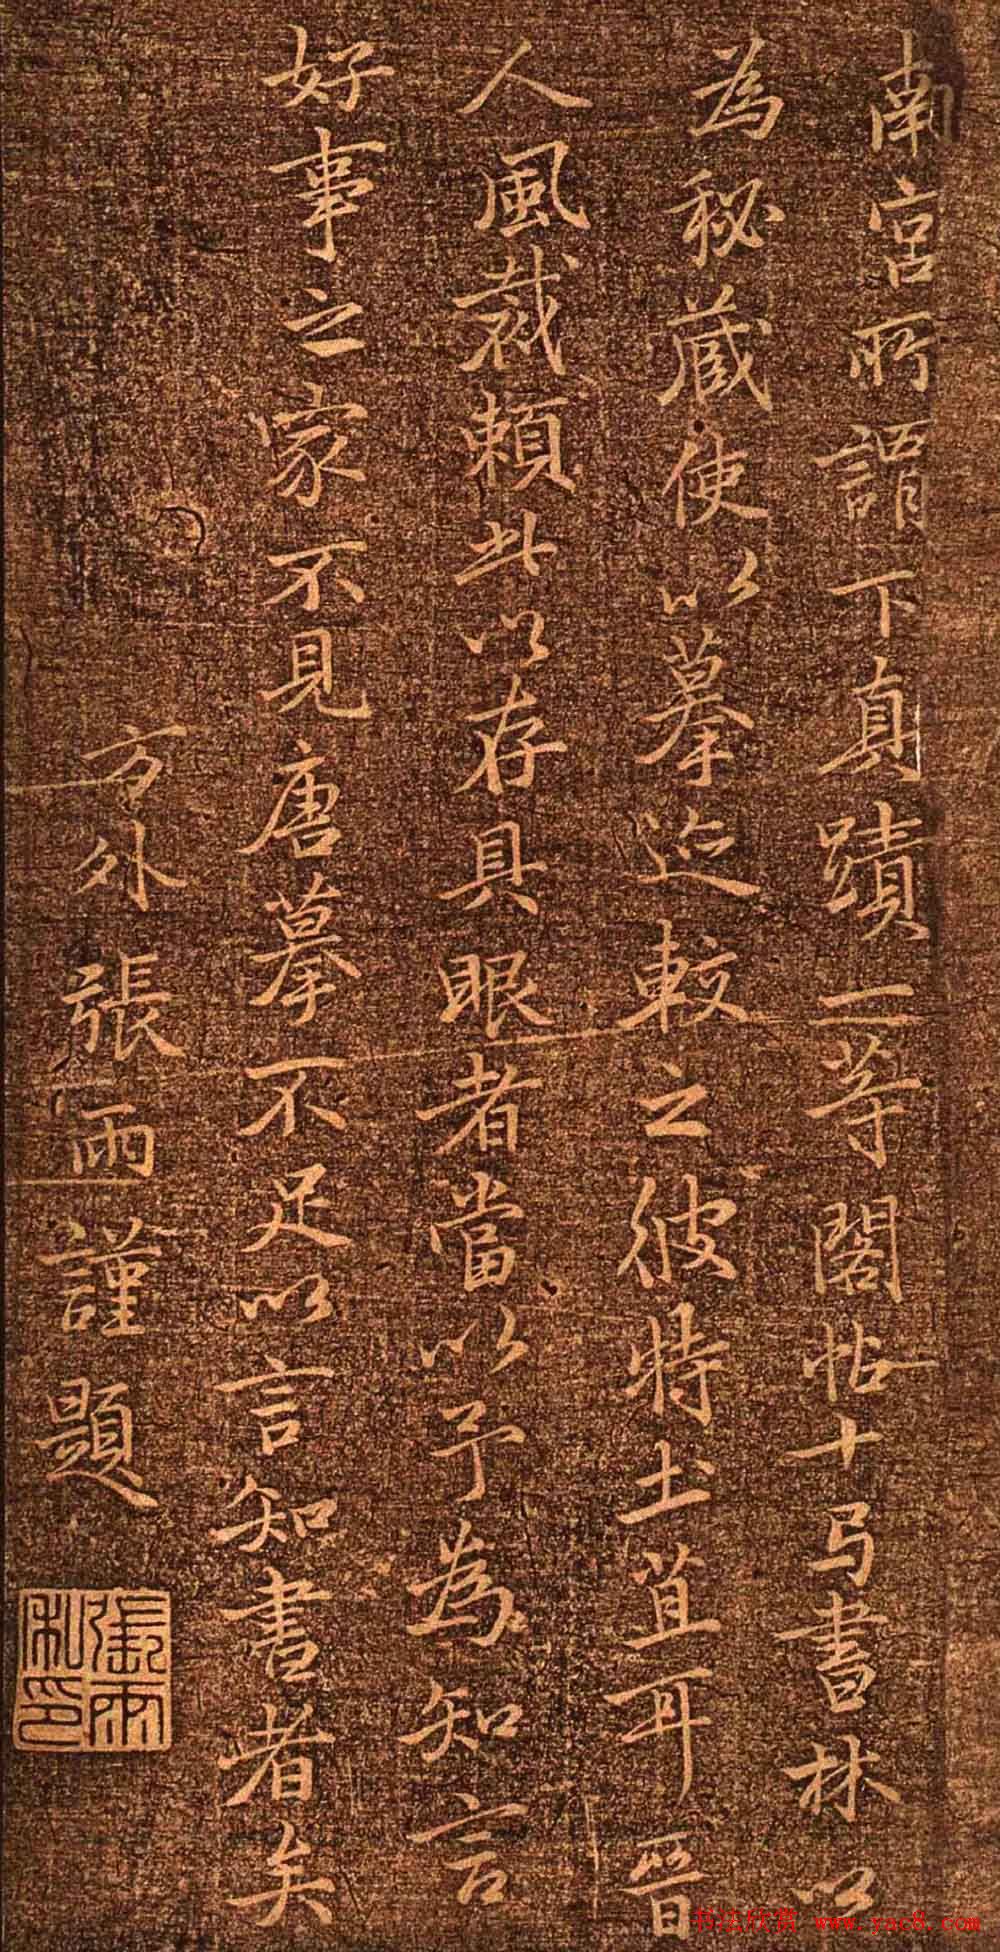 南宮所謂下真蹟一等閣帖十弓書林以
為秘蔵使以摹迹較之彼特土苴耳晉
人風裁頼此以存具眼者當以予為知言
好事之家不見唐摹不足以言知書者矣
方外張雨謹題
張雨私印
书法欣赏 www.yac8.com